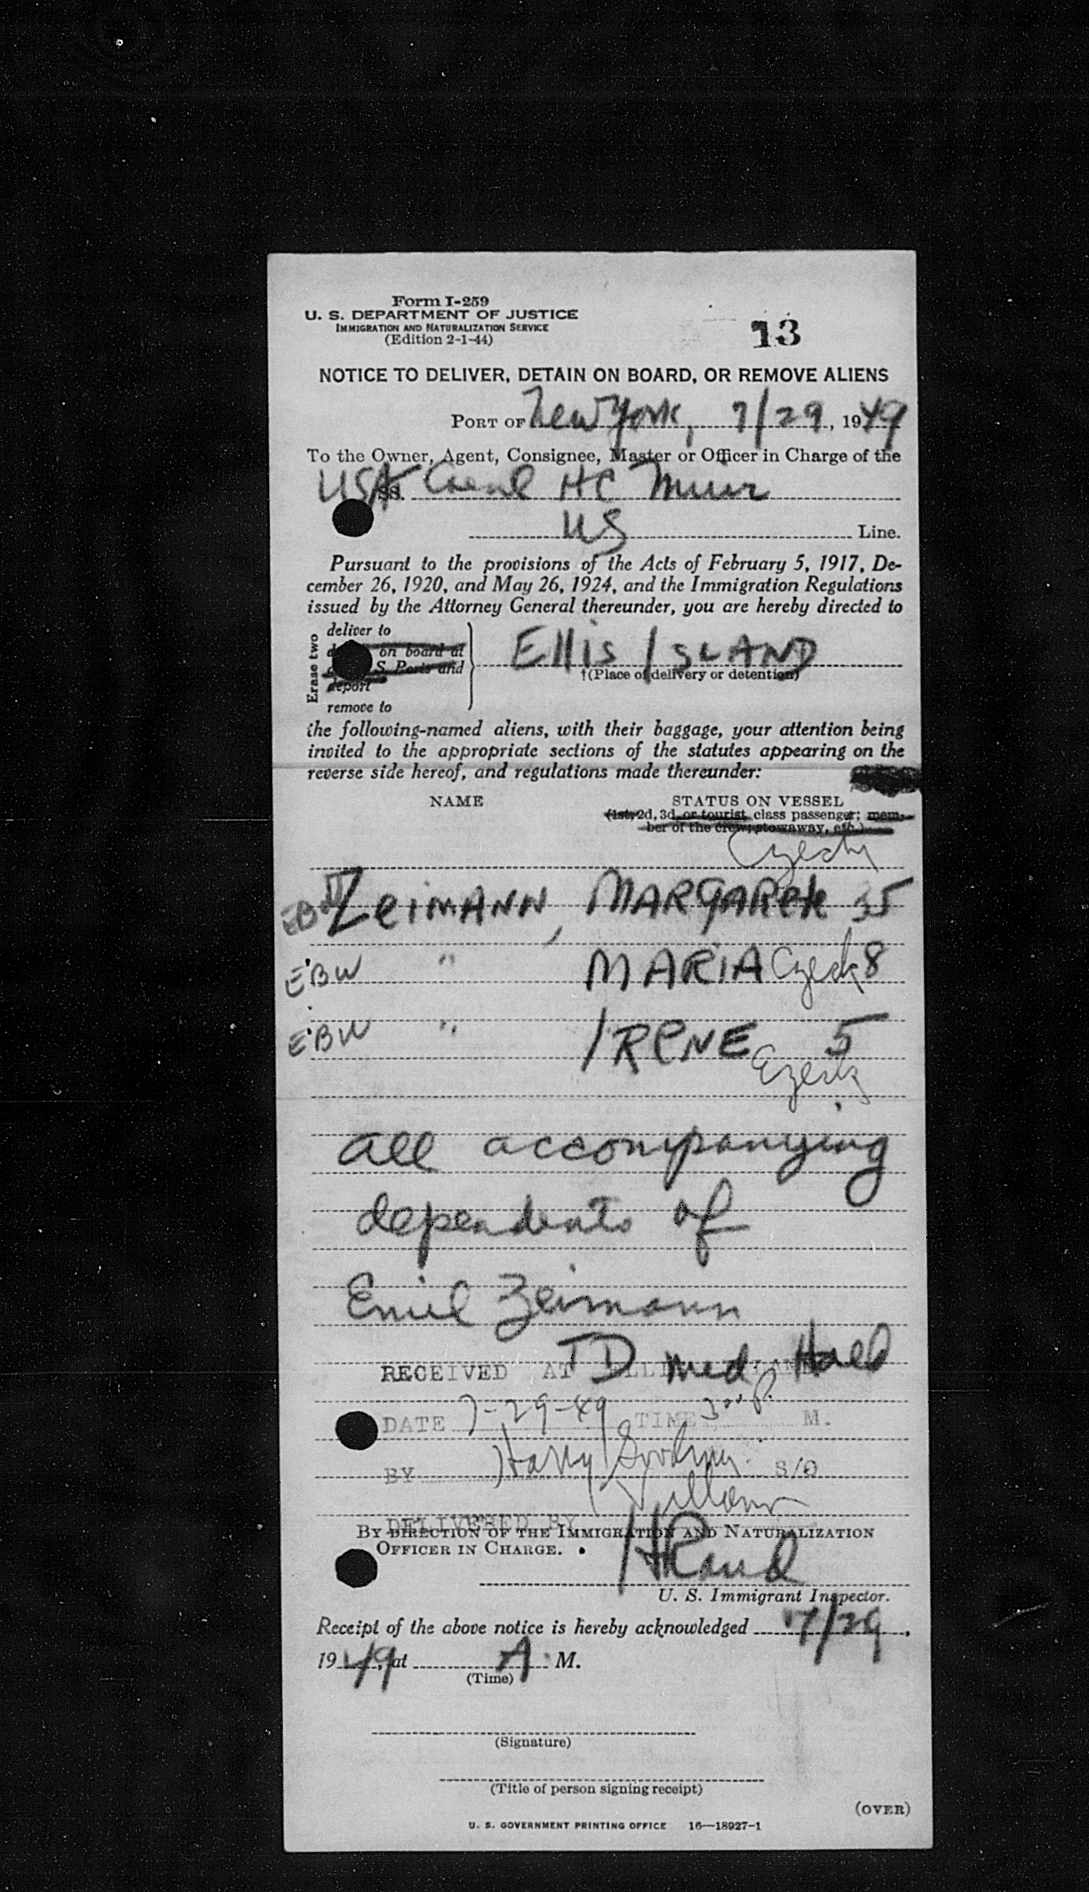 Form I-259
U. S. DEPARTMENT OF JUSTICE
IMMIGRATION AND NATURALIZATION SERVICE
(Edition 2-1-44)
13
NOTICE TO DELIVER, DETAIN ON BOARD, OR REMOVE ALIENS
PORT OF New York, 7/29, 1949
To the Owner, Agent, Consignee, Master or Officer in Charge of the
USAT SS. Genl HC Muir
US Line.
Pursuant to the provisions of the Acts of February 5, 1917, De-
cember 26, 1920, and May 26, 1924, and the Immigration Regulations
issued by the Attorney General thereunder, you are hereby directed to
Erase two
deliver to
on board at
S Ports and
deport
remove to
Ellis ISLAND
†(Place of delivery or detention)
the following-named aliens, with their baggage, your attention being
invited to the appropriate sections of the statutes appearing on the
reverse side hereof, and regulations made thereunder:
NAME STATUS ON VESSEL
(1st, 2d, 3d, or tourist class passenger; mem-
ber of the crew; stowaway, etc.)
Czech
EBW ZeiMANN, MARGARete 35
EBW " MARIA Czech 8
EBW " IRENE 5
Czech
all accompanying
dependents of
Emil Zeimann
TD med Hold
RECEIVED AT ELLIS ISLAND
DATE 7-29-49 TIME 3 00 P. M.
BY Harry S/O
DELIVERED BY
BY DIRECTION OF THE IMMIGRATION AND NATURALIZATION
OFFICER IN CHARGE.
HRand
U. S. Immigrant Inspector.
Receipt of the above notice is hereby acknowledged 7/29,
1949, at A. M.
(Time)
(Signature)
(Title of person signing receipt)
(OVER)
U. S. GOVERNMENT PRINTING OFFICE 16—18927-1